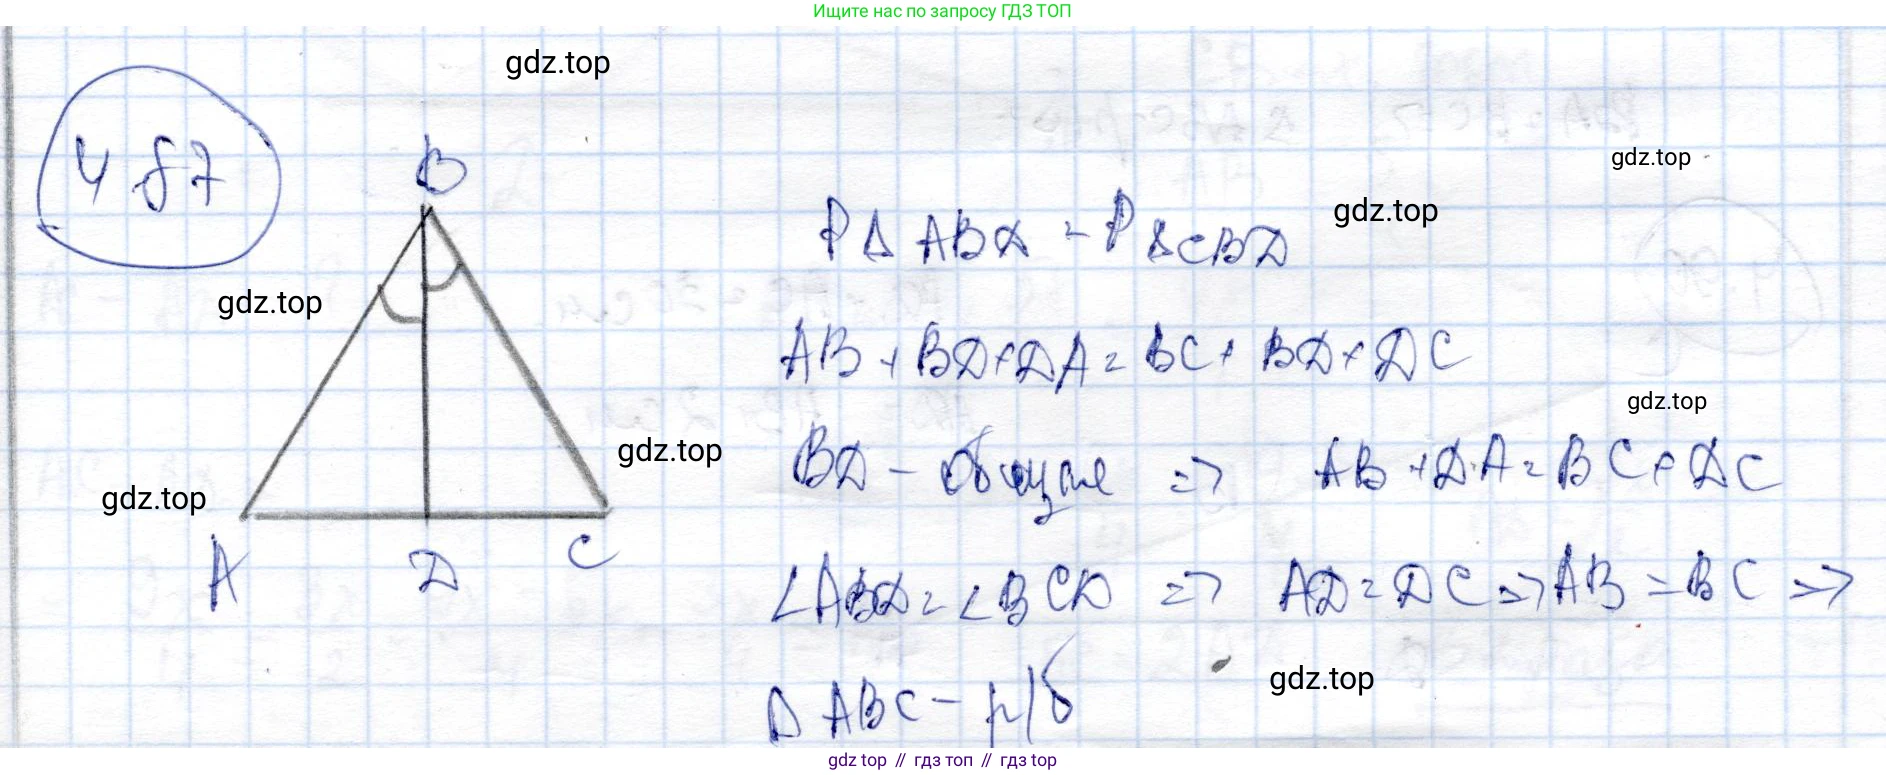 Ищите нас по запросу ГДЗ ТОП
gdz.top
487
B
gdz.top
P∆ABD = P∆CBD
gdz.top
gdz.top
AB + BD + DA = BC + BD + DC
gdz.top
gdz.top
BD – общая => AB + DA = BC + DC
gdz.top
A D C
∠ABD = ∠BCD => AD = DC => AB = BC =>
gdz.top
∆ABC – р/б
gdz top // гдз топ // гдз top